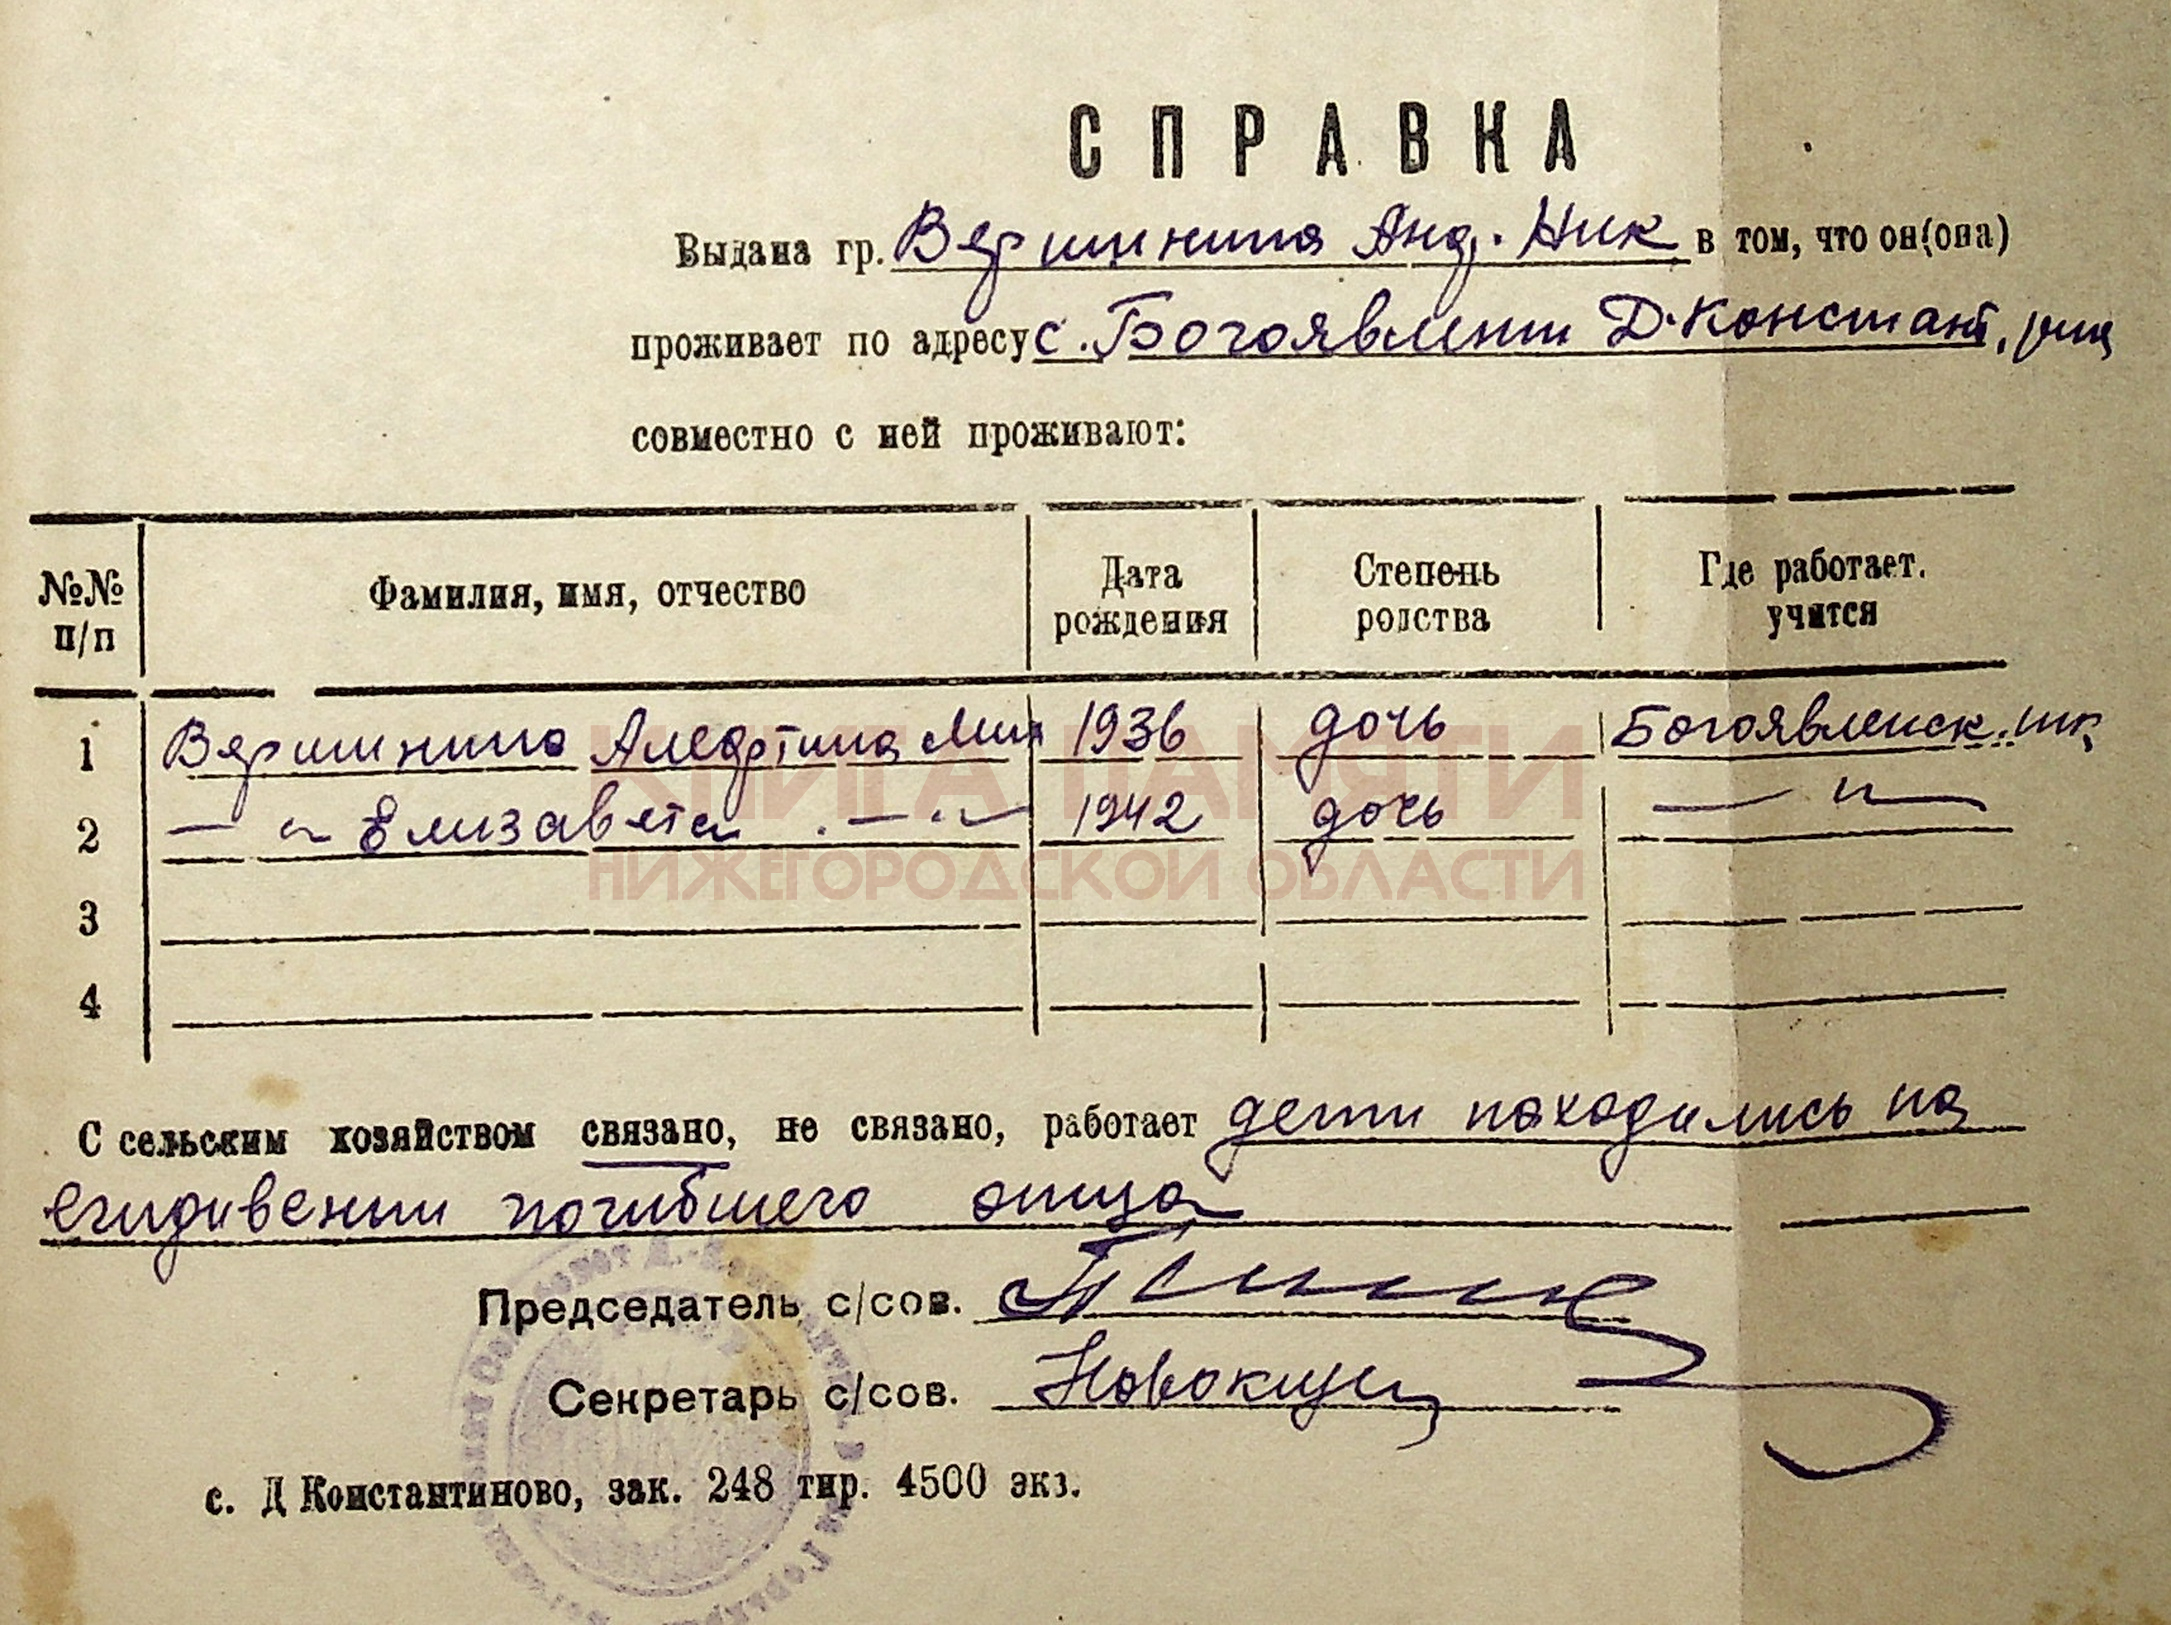 СПРАВКА
Выдана гр. Вершинина Анд. Ник. в том, что он(она)
проживает по адресу с. Богоявлени Д.Констант.
совместно с ней проживают:
№№ п/п
Фамилия, имя, отчество
Дата рождения
Степень родства
Где работает. учится
1 Вершинина Алефтина Мих 1936 дочь Богоявленск. шк
2 — „ Елизавета . — „ — 1942 дочь — „ —
3
4
С сельским хозяйством связано, не связано, работает дети находились на
егидивении погибшего отца
Председатель с/сов.
Секретарь с/сов.
с. Д Константиново, зак. 248 тир. 4500 экз.
КНИГА ПАМЯТИ
НИЖЕГОРОДСКОЙ ОБЛАСТИ